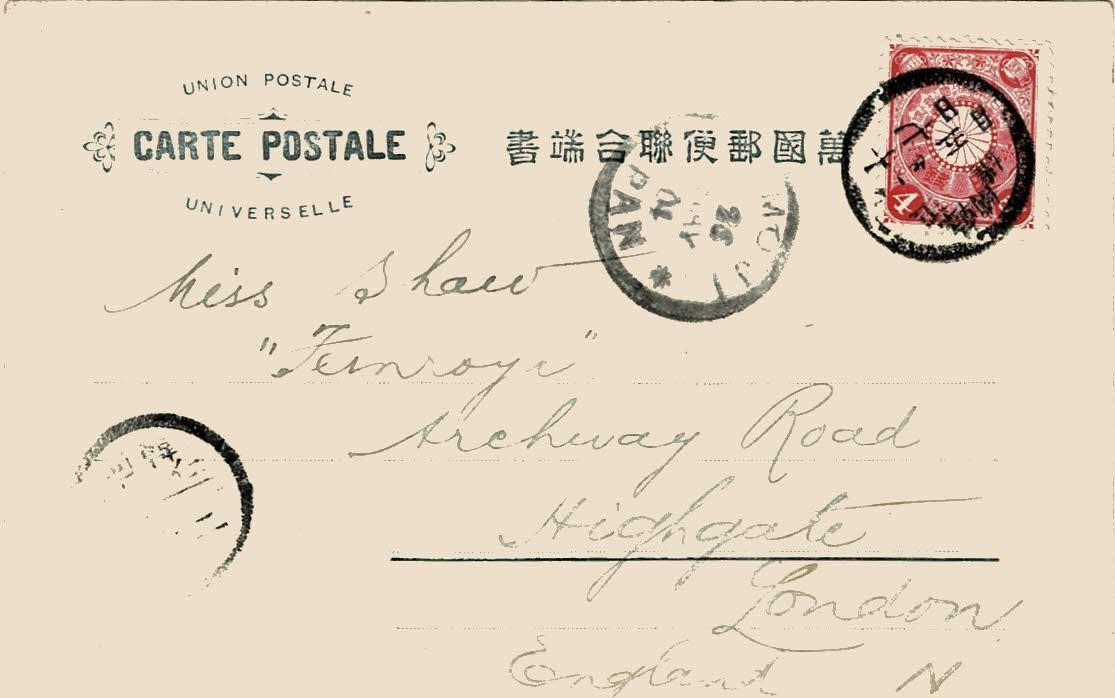 UNION POSTALE
CARTE POSTALE
UNIVERSELLE
萬國郵便聯合端書
4
PAN
Miss Shaw
Archway Road
Highgate
London
England N